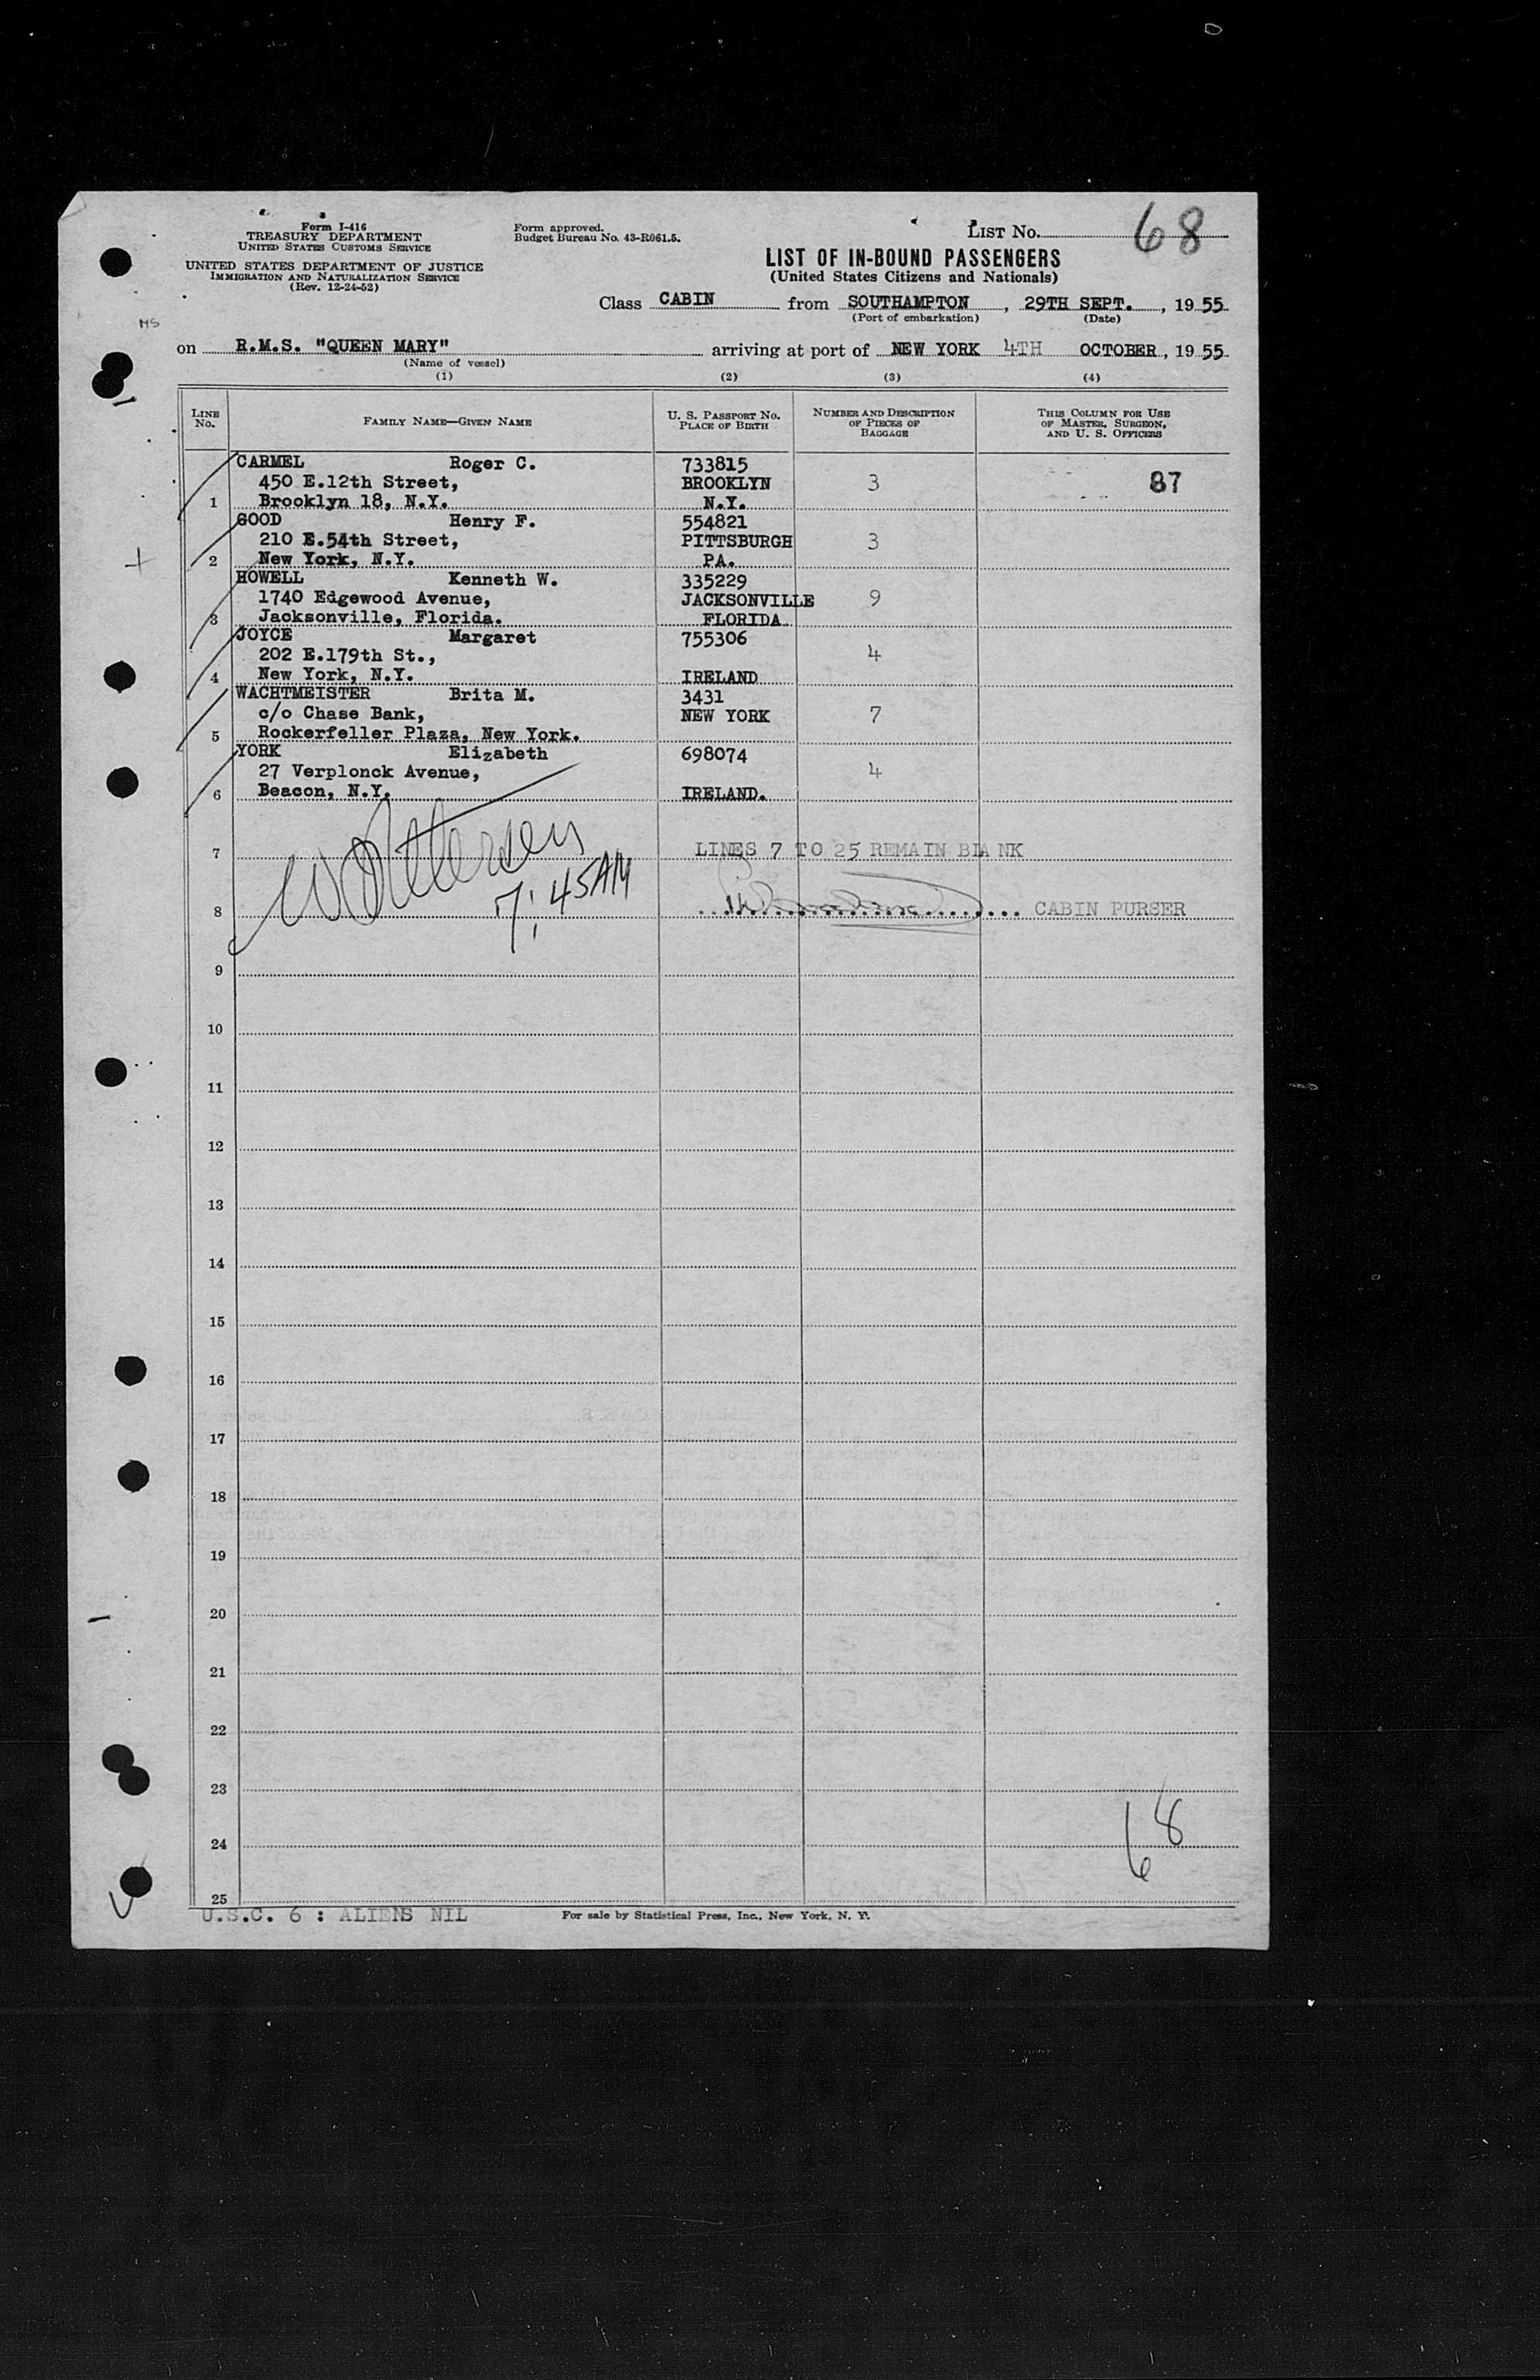 Form I-416
TREASURY DEPARTMENT
UNITED STATES CUSTOMS SERVICE
UNITED STATES DEPARTMENT OF JUSTICE
IMMIGRATION AND NATURALIZATION SERVICE
(Rev. 12-24-52)
Form approved.
Budget Bureau No. 43-R061.5.
LIST No. 68
LIST OF IN-BOUND PASSENGERS
(United States Citizens and Nationals)
Class CABIN from SOUTHAMPTON, 29TH SEPT., 1955
(Port of embarkation) (Date)
MS
on R.M.S. "QUEEN MARY" arriving at port of NEW YORK 4TH OCTOBER, 1955
(Name of vessel)
(1) (2) (3) (4)
LINE No. FAMILY NAME—GIVEN NAME U. S. PASSPORT No. PLACE OF BIRTH NUMBER AND DESCRIPTION OF PIECES OF BAGGAGE THIS COLUMN FOR USE OF MASTER, SURGEON, AND U. S. OFFICERS
CARMEL Roger C. 733815
450 E.12th Street, BROOKLYN 3 87
1 Brooklyn 18, N.Y. N.Y.
GOOD Henry F. 554821
210 E.54th Street, PITTSBURGH 3
2 New York, N.Y. PA.
HOWELL Kenneth W. 335229
1740 Edgewood Avenue, JACKSONVILLE 9
3 Jacksonville, Florida. FLORIDA
JOYCE Margaret 755306
202 E.179th St., 4
4 New York, N.Y. IRELAND
WACHTMEISTER Brita M. 3431
c/o Chase Bank, NEW YORK 7
5 Rockerfeller Plaza, New York.
YORK Elizabeth 698074
27 Verplonck Avenue, 4
6 Beacon, N.Y. IRELAND.
7 LINES 7 TO 25 REMAIN BLANK
7:45AM
8 CABIN PURSER
9
10
11
12
13
14
15
16
17
18
19
20
21
22
23
68
24
25
U.S.C. 6 : ALIENS NIL
For sale by Statistical Press, Inc., New York, N. Y.